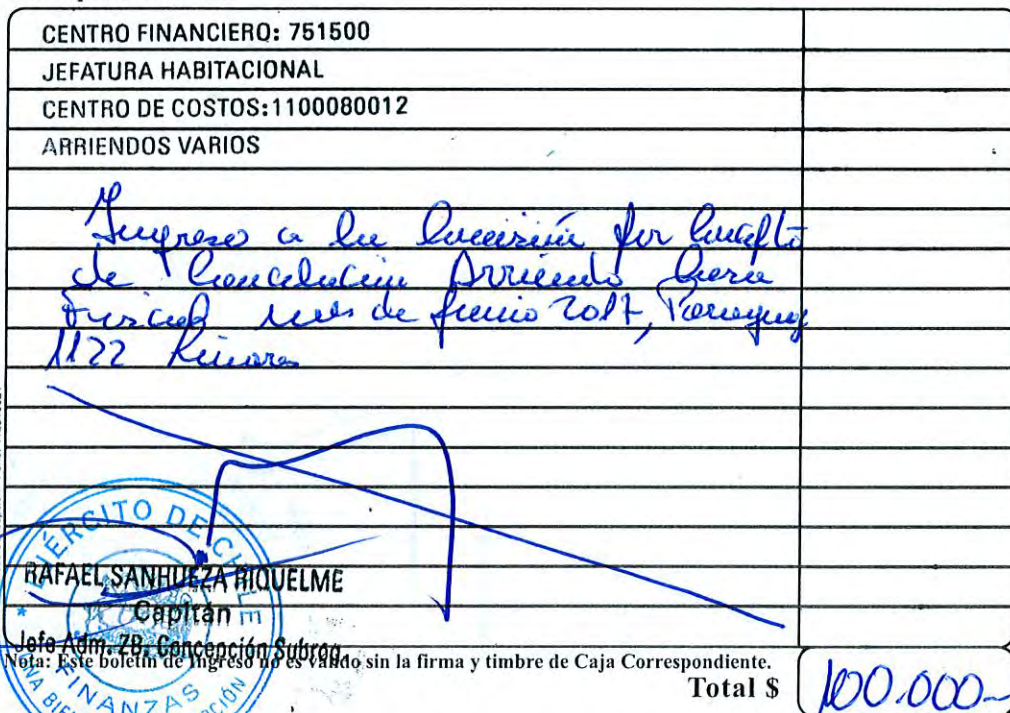 CENTRO FINANCIERO: 751500
JEFATURA HABITACIONAL
CENTRO DE COSTOS:1100080012
ARRIENDOS VARIOS
Ingreso a la por
de Arriendo
Fiscal mes de Junio 2017, Paraguay
1122
EJÉRCITO DE CHILE
RAFAEL SANHUEZA RIQUELME
Capitán
Jefe Adm. ZB. Concepción Subrog.
Nota: Este boletín de Ingreso no es válido sin la firma y timbre de Caja Correspondiente.
FINANZAS
Total $ 100.000-